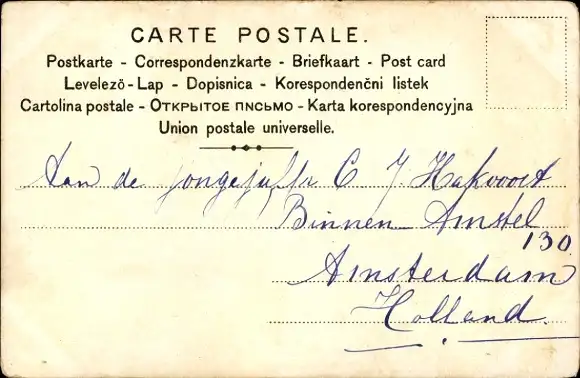 CARTE POSTALE.
Postkarte - Correspondenzkarte - Briefkaart - Post card
Levelező-Lap - Dopisnica - Korespondenčni listek
Cartolina postale - ОТКРЫТОЕ ПNСЬМО - Karta korespondencyjna
Union postale universelle.
Aan de jongejuffr. C. J. Hakvoort
Binnen Amstel
130
Amsterdam
Holland.